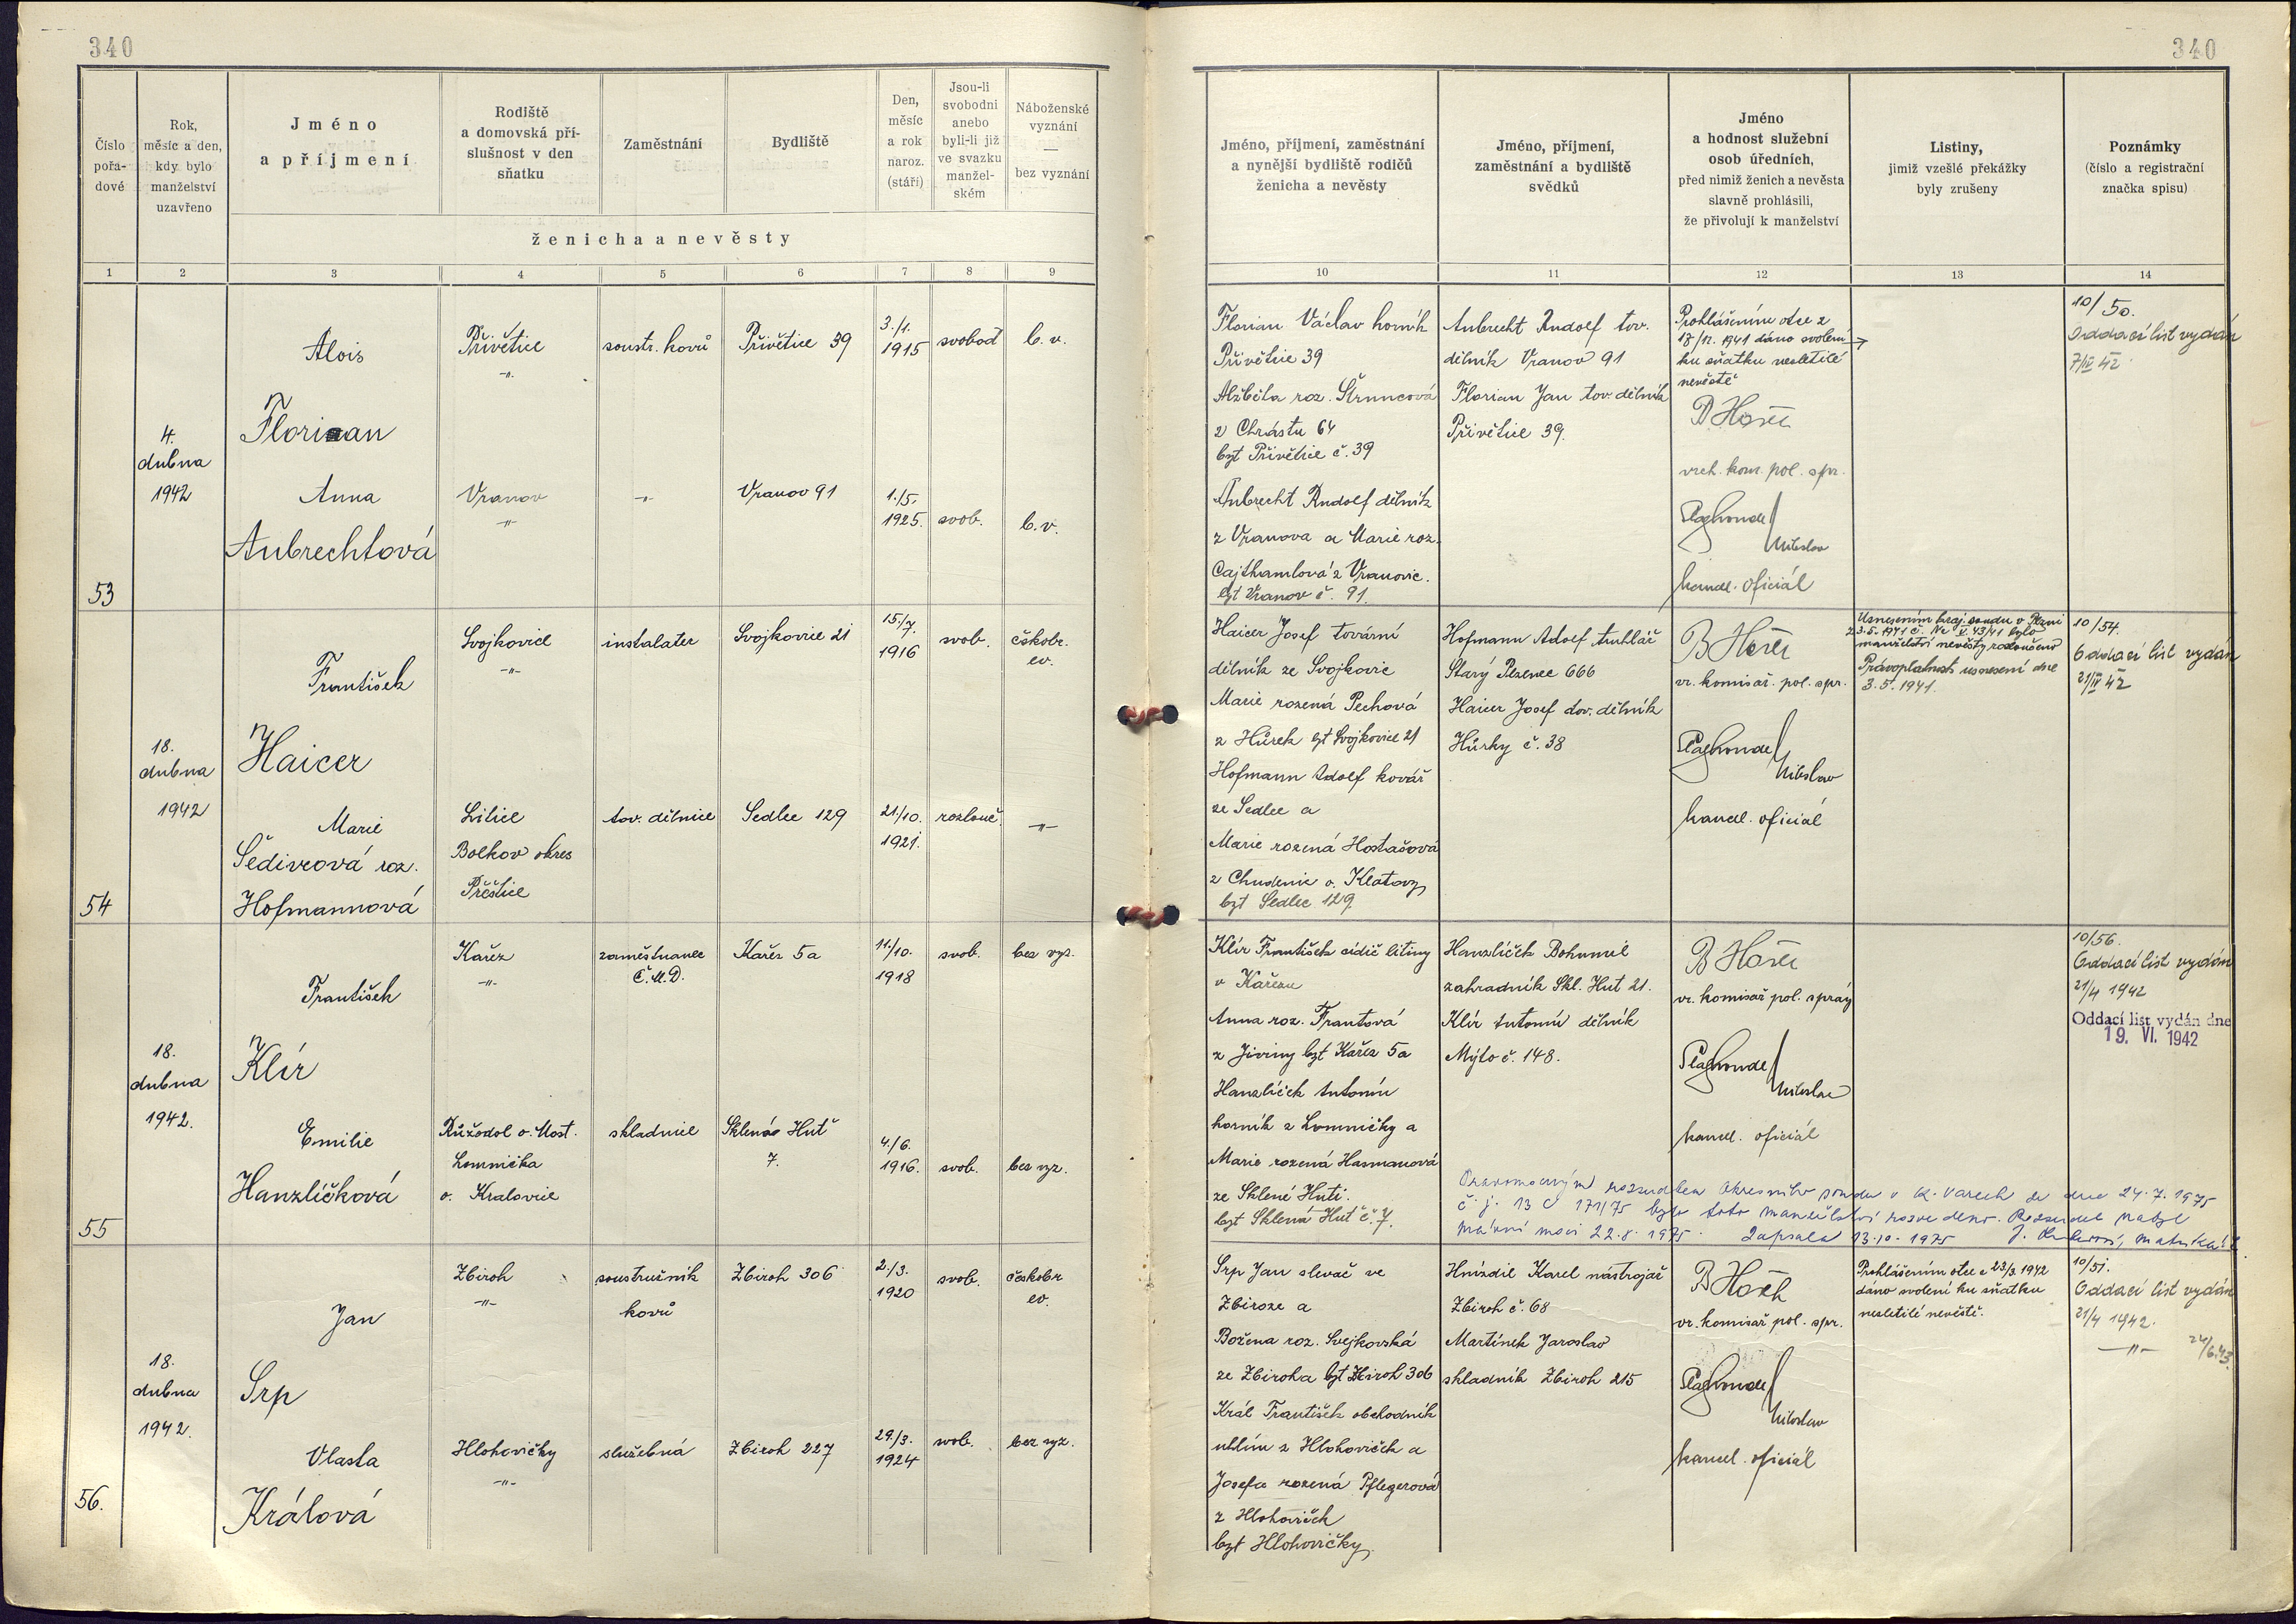 340
340
Číslo pořa-dové
Rok, měsíc a den, kdy bylo manželství uzavřeno
Jméno a příjmení
Rodiště a domovská pří-slušnost v den sňatku
Zaměstnání
Bydliště
Den, měsíc a rok naroz. (stáří)
Jsou-li svobodni anebo byli-li již ve svazku manžel-ském
Náboženské vyznání — bez vyznání
ženicha a nevěsty
Jméno, příjmení, zaměstnání a nynější bydliště rodičů ženicha a nevěsty
Jméno, příjmení, zaměstnání a bydliště svědků
Jméno a hodnost služební osob úředních, před nimiž ženich a nevěsta slavně prohlásili, že přivolují k manželství
Listiny, jimiž vzešlé překážky byly zrušeny
Poznámky (číslo a registrační značka spisu)
1 2 3 4 5 6 7 8 9 10 11 12 13 14
53
4. dubna 1942
Alois
Florian
Přivětice
-"-
soustr. kovů
Přivětice 39
3./1. 1915
svobod
b. v.
Anna
Aubrechtová
Vranov
-"-
-"-
Vranov 91
1./5. 1925.
svob.
b. v.
Florian Václav horník
Přivětice 39
Alžběta roz. Štruncová
z Chrástu 64
byt Přivětice č. 39
Aubrecht Rudolf dělník
z Vranova a Marie roz.
Cajthamlová z Vranovic.
byt Vranov č. 91.
Aubrecht Rudolf tov.
dělník Vranov 91
Florian Jan tov. dělník
Přivětice 39.
Prohlášením otce z
18/12. 1941 dáno svolení
ku sňatku nezletilé
nevěstě
vrch. kom. pol. spr.
Miloslav
kancl. oficiál
10/50.
Oddací list vydán
7/IV 42
54
18. dubna 1942
František
Haicer
Svojkovice
-"-
instalater
Svojkovice 21
15./7. 1916
svob.
českobr. ev.
Marie
Šedivcová roz.
Hofmannová
Litice
Bolkov okres
Přeštice
tov. dělnice
Sedlec 129
21./10. 1921.
rozlouč.
-"-
Haicer Josef tovární
dělník ze Svojkovic
Marie rozená Pechová
z Hůrek byt Svojkovice 21
Hofmann Adolf kovář
ze Sedlce a
Marie rozená Hostašová
z Chudenic o. Klatovy
byt Sedlec 129.
Hofmann Adolf truhlář
Starý Plzenec 666
Haicer Josef tov. dělník
Hůrky č. 38
vr. komisař. pol. spr.
Miloslav
kancl. oficiál
Usnesením kraj. soudu v Plzni
z 3.5.1941 č. Nc V. 43/41 bylo
manželství nevěsty rozloučeno
Právoplatnost usnesení dne
3.5.1941.
10/54.
Oddací list vydán
21/IV 42
55
18. dubna 1942.
František
Klír
Kařez
-"-
zaměstnanec
Č.M.D.
Kařez 5a
11./10. 1918
svob.
bez vyz.
Emilie
Hanzlíčková
Růžodol o. Most.
Lomnička
o. Kralovice
skladnice
Sklená Huť
7.
4./6. 1916.
svob.
bez vyz.
Klír František cídič litiny
v Kařezu
Anna roz. Frantová
z Jiviny byt Kařez 5a
Hanzlíček Antonín
horník z Lomničky a
Marie rozená Hasmanová
ze Sklené Huti.
byt Sklená Huť č. 7.
Hanzlíček Bohumil
zahradník Skl. Huť 21.
Klír Antonín dělník
Mýto č. 148.
vr. komisař pol. správy
Miloslav
kancl. oficiál
10/56.
Oddací list vydán
21/4 1942
Oddací list vydán dne
19. VI. 1942
Pravomocným rozsudkem Okresního soudu v K. Varech ze dne 24.7.1975
č. j. 13 C 171/75 bylo toto manželství rozvedeno. Rozsudek nabyl
právní moci 22.8.1975. Zapsala 13.10.1975
56.
18. dubna 1942.
Jan
Srp
Zbiroh
-"-
soustružník
kovů
Zbiroh 306
2./3. 1920
svob.
českobr. ev.
Vlasta
Králová
Hlohovičky
-"-
služebná
Zbiroh 227
29./3. 1924
svob.
bez vyz.
Srp Jan slevač ve
Zbiroze a
Božena roz. Svejkovská
ze Zbiroha byt Zbiroh 306
Král František obchodník
uhlím z Hlohoviček a
Josefa rozená Pflegerová
z Hlohoviček
byt Hlohovičky.
Hnízdil Karel nástrojař
Zbiroh č. 68
Martínek Jaroslav
skladník Zbiroh 215
vr. komisař pol. spr.
Miloslav
kancel. oficiál
Prohlášením otce z 23/3 1942
dáno svolení ku sňatku
nezletilé nevěstě.
10/51.
Oddací list vydán
21/4 1942.
-"- 24/6.43